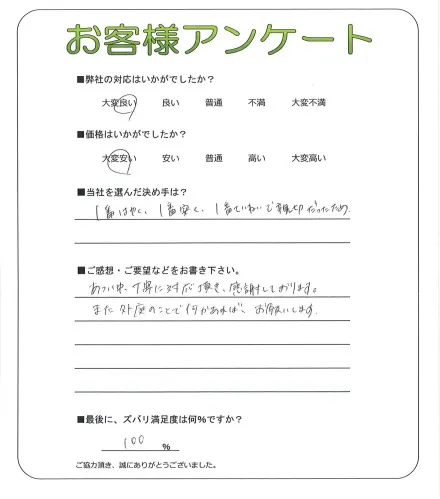 お客様アンケート
■弊社の対応はいかがでしたか?
大変良い 良い 普通 不満 大変不満
■価格はいかがでしたか?
大変安い 安い 普通 高い 大変高い
■当社を選んだ決め手は?
1番はやく、1番安く、1番ていねいで親切だったため
■ご感想・ご要望などをお書き下さい。
あつい中、丁寧に対応頂き、感謝しております。
また外庭のことで何かあれば、お願いします。
■最後に、ズバリ満足度は何%ですか?
100 %
ご協力頂き、誠にありがとうございました。